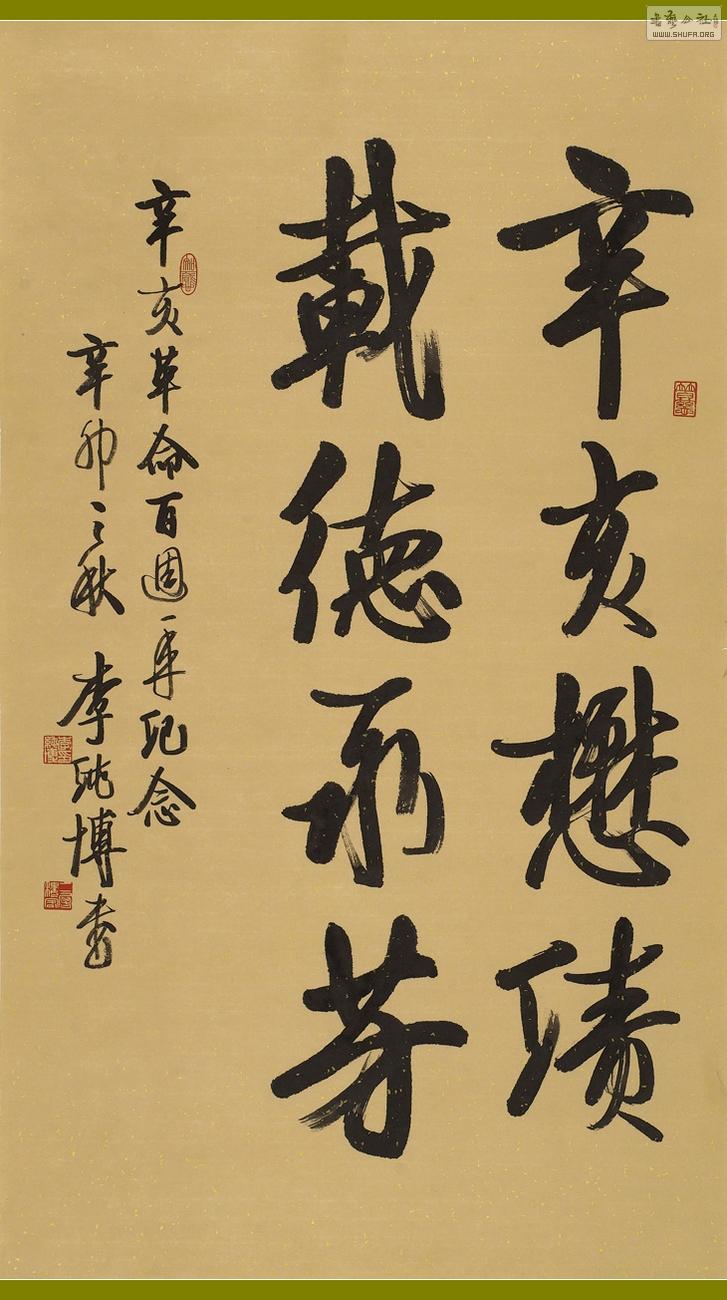 辛亥懋績
載德芳
辛亥革命百週年紀念
辛卯之秋 李純博書
書藝公社
WWW.SHUFA.ORG